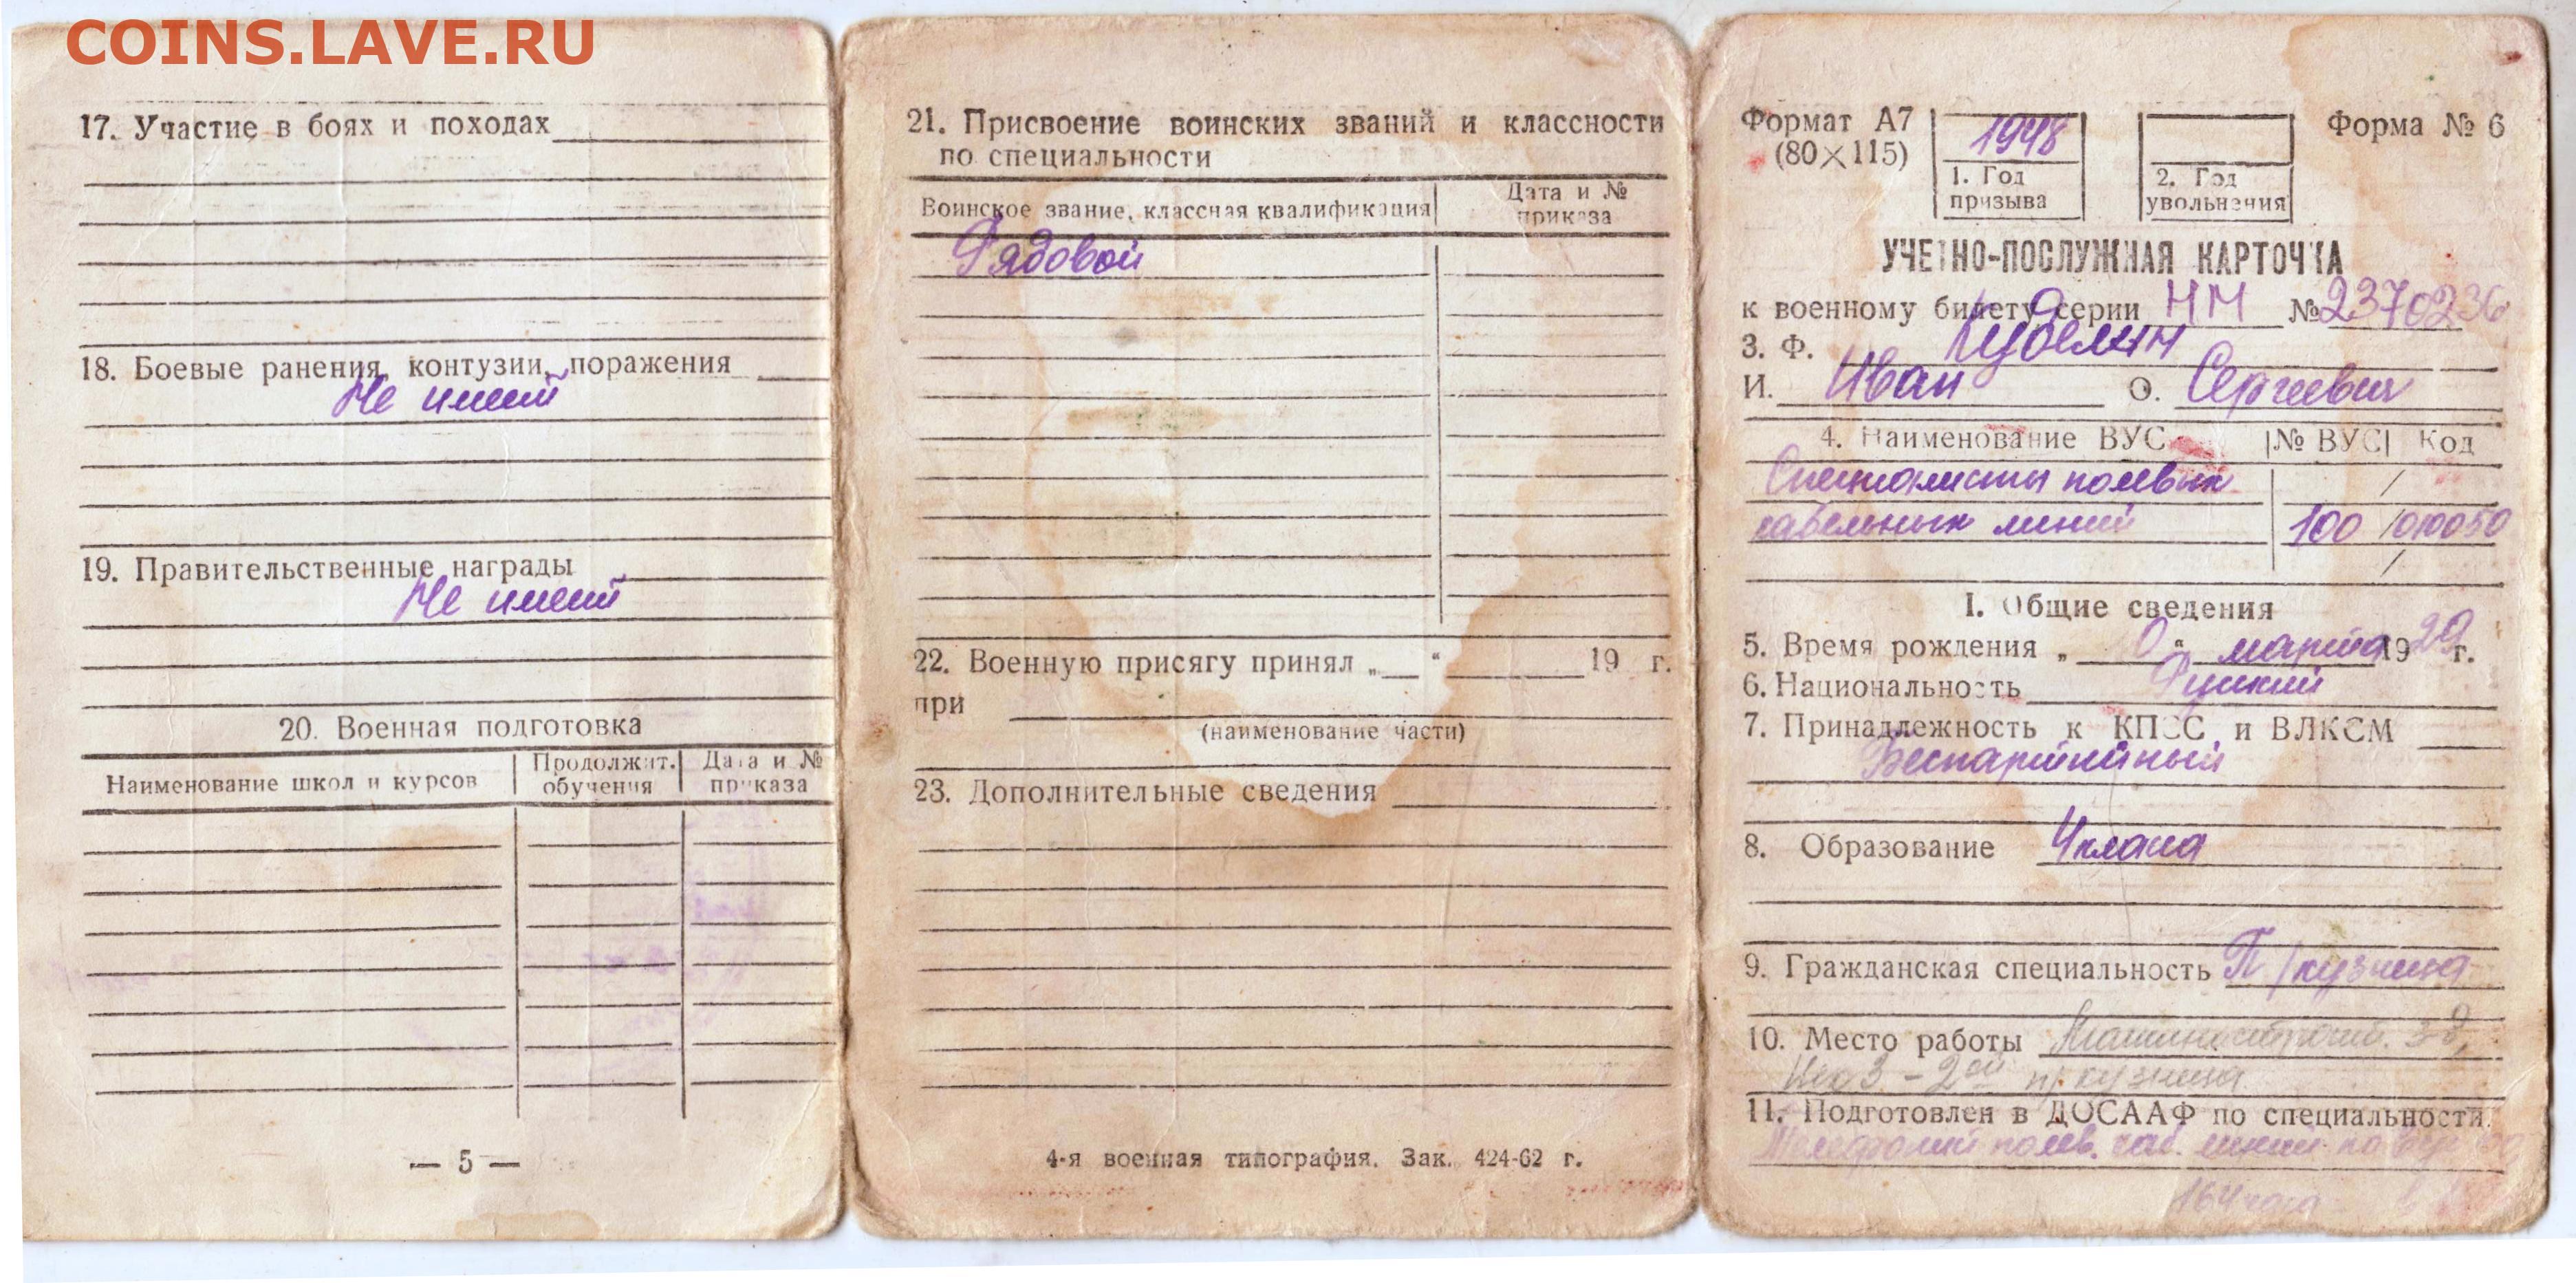 COINS.LAVE.RU
17. Участие в боях и походах
18. Боевые ранения, контузии, поражения
Не имеет
19. Правительственные награды
Не имеет
20. Военная подготовка
Наименование школ и курсов
Продолжит. обучения
Дата и № приказа
— 5 —
21. Присвоение воинских званий и классности
по специальности
Воинское звание, классная квалификация
Дата и № приказа
Рядовой
22. Военную присягу принял „ “ 19 г.
при
(наименование части)
23. Дополнительные сведения
4-я военная типография. Зак. 424-62 г.
Формат А7
(80×115)
1948
1. Год призыва
2. Год увольнения
Форма № 6
УЧЕТНО-ПОСЛУЖНАЯ КАРТОЧКА
к военному билету серии НМ № 2370236
3. Ф.
И. Иван О. Сергеевич
4. Наименование ВУС № ВУС Код
Специалисты полевых /
кабельных линий 100 /010050
/
I. Общие сведения
5. Время рождения „ “ марта 1929 г.
6. Национальность Русский
7. Принадлежность к КПСС и ВЛКСМ
Беспартийный
8. Образование 4 класса
9. Гражданская специальность П/кузнеца
10. Место работы Машиностроит. з-д,
п/кузнеца
11. Подготовлен в ДОСААФ по специальности
полев. каб. линий по
164 часа